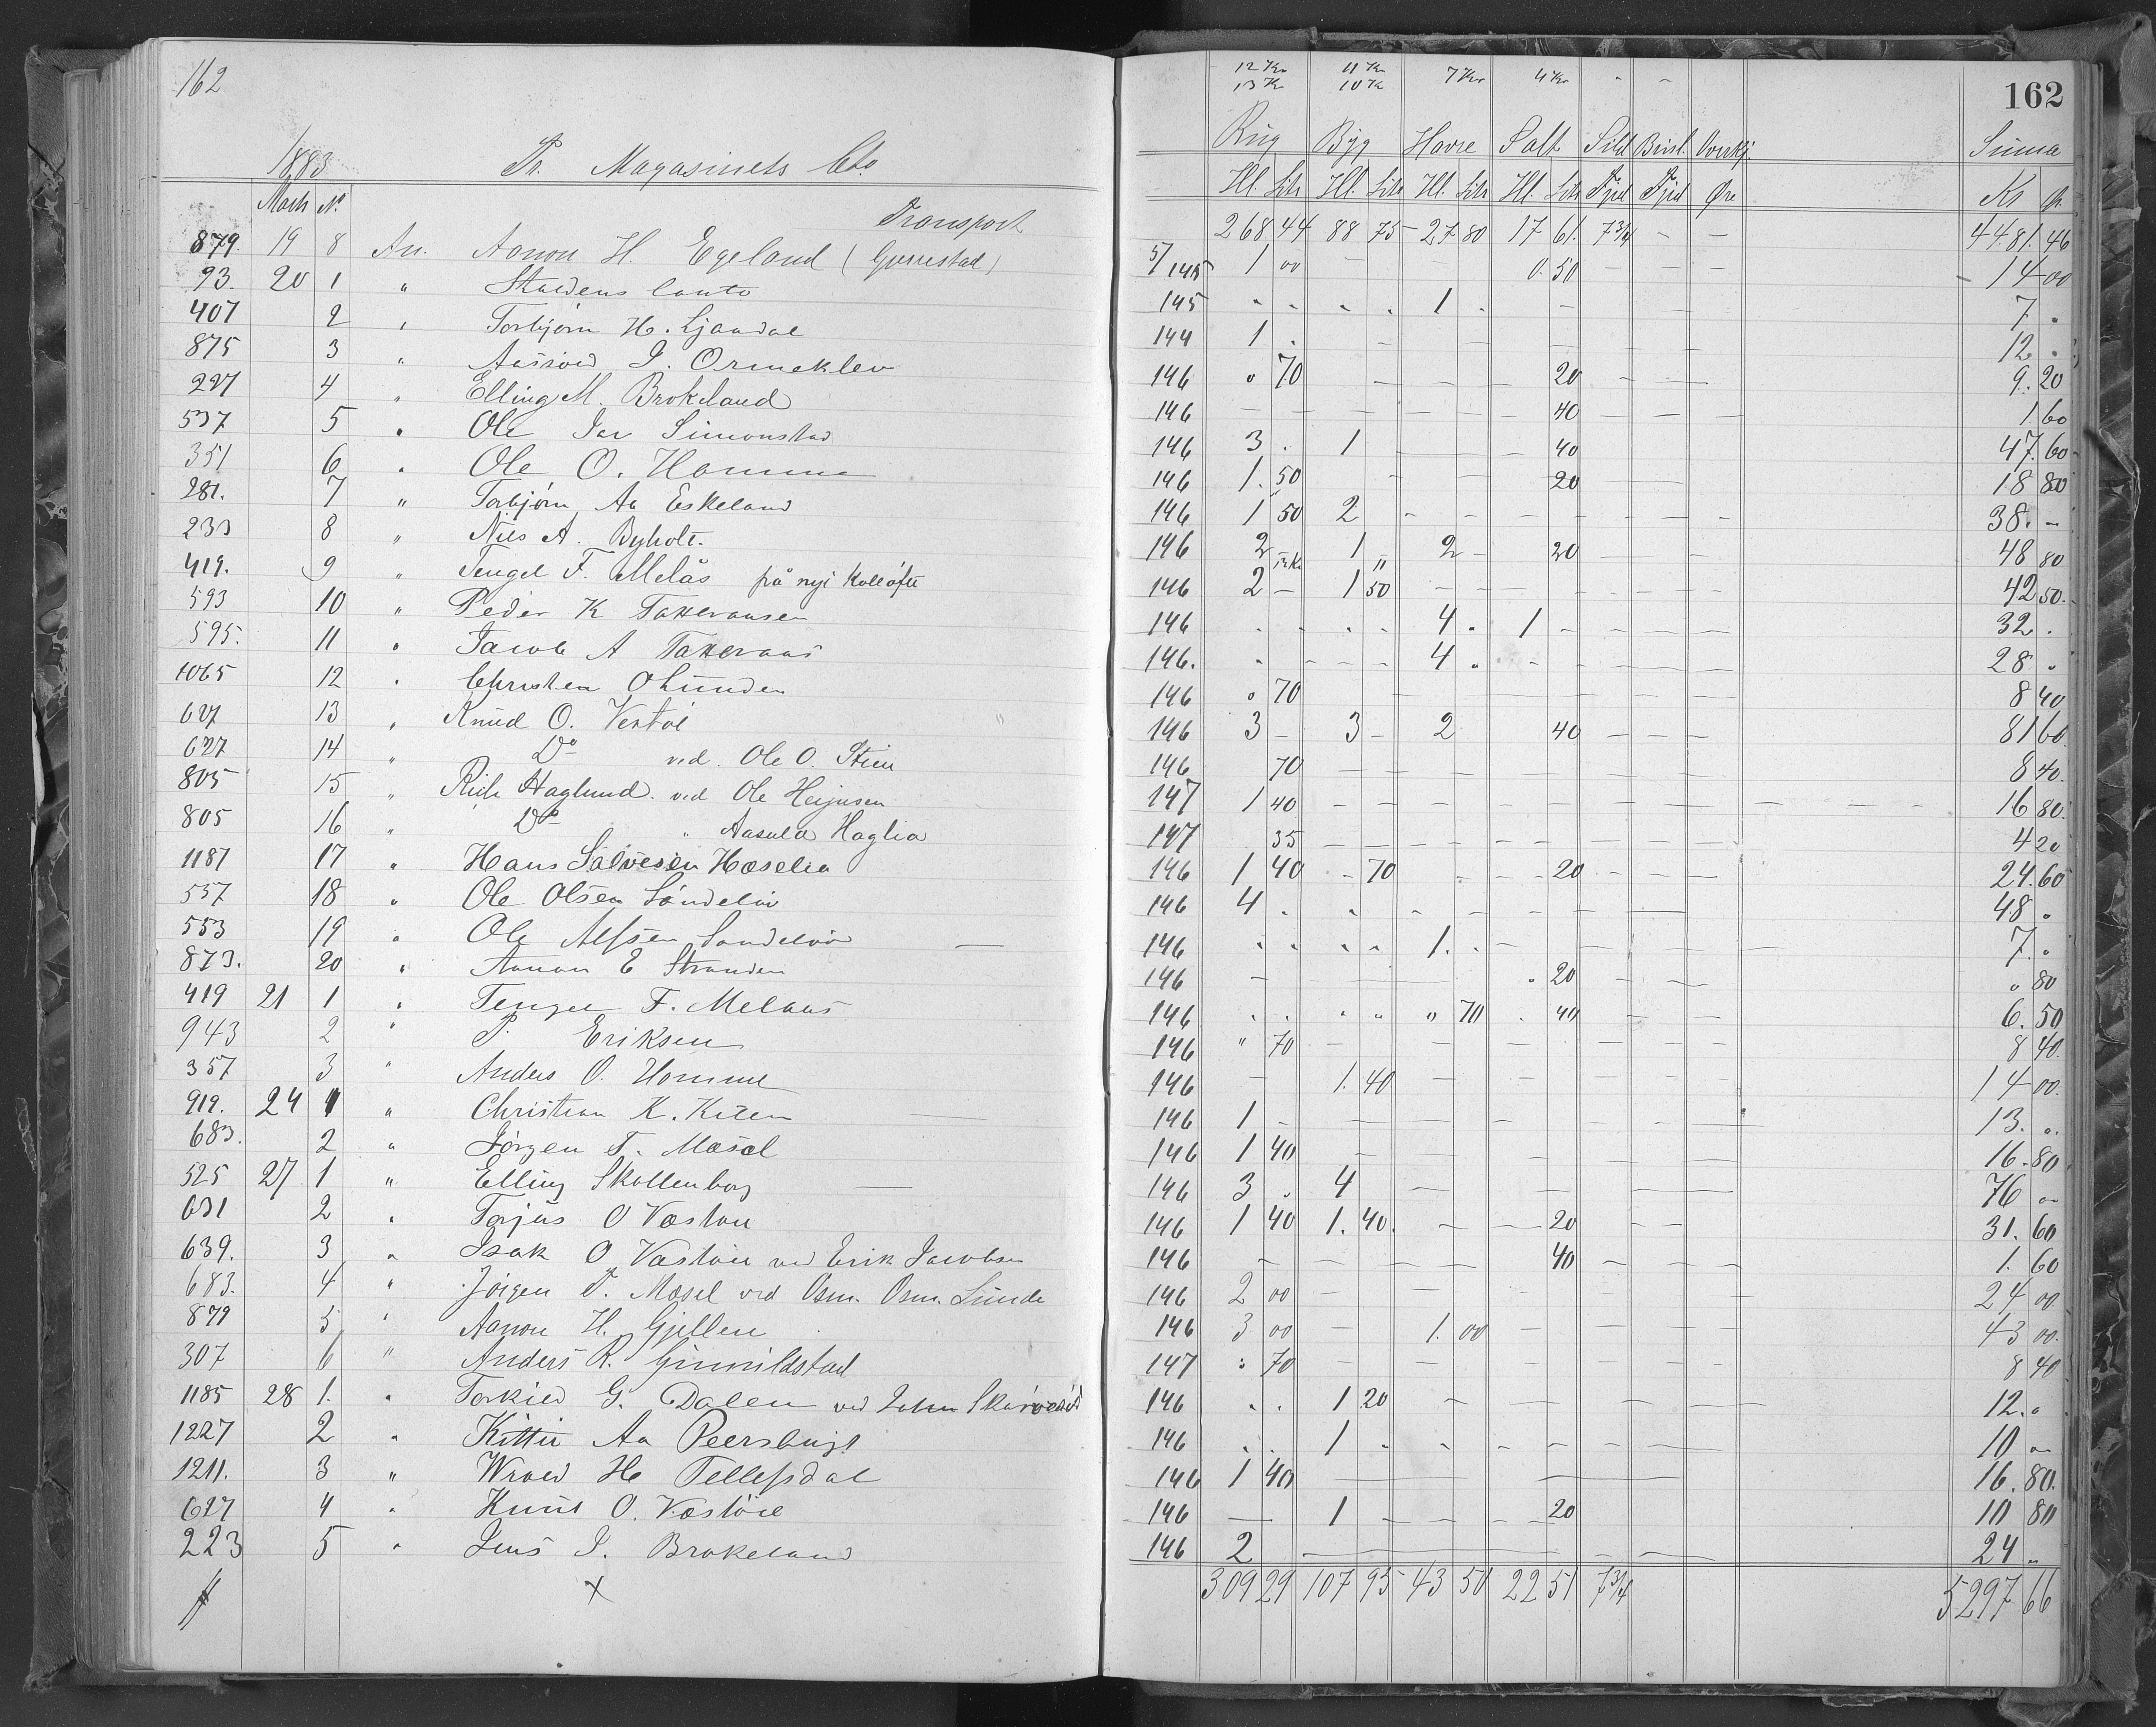 162
1883 Pr. Magasinets Cto.
12 Kr 11 Kr 7 Kr 4 Kr - -
13 Kr 10 Kr
162
Rug Byg Havre Salt Sild Summa
March No
Hl. Litr Hl. Litr Hl. Litr Hl. Litr Fjrd Fjrd Øre Kr
Transport 268 44 88 75 27 80 17 61 7 3/4 - - 4481. 46
879. 19 8 An. Aanon H. Egeland 5/145 1 00 - - 0. 50 14 00
93. 20 1 " Conto 145 " " " " 1 . - 7 "
407 2 " Torbjørn H. Ljøndal 144 1 . - - 12 "
875 3 " J. Ormeklev 146 " 70 - - - 20 - - 9. 20
227 4 " Elling M. Brokeland 146 - - - - - - 40 - - - 1 60
537 5 " Ole Simonstad 146 3 . 1 - - 40 47. 60
351 6 " Ole O. Homme 146 1. 50 - - 20 18 80
281. 7 " Torbjørn Aa Eskeland 146 1 50 2 - - - - - - - 38. -
233 8 " Nils A. Byholt. 146 2 1 " 2 - 20 - - - 48 80
419. 9 " Tengel F. Melås på nyt 146 2 - 1 50 - - - - - - - 42 50.
593 10 " Peder K Taxeraasen 146 " " " " 4 " 1 - - - - 32 .
595. 11 " Jacob A Taxeraas 146. " - - - 4 " - - - - 28 "
1065 12 " Christen Olunden 146 " 70 - - - - - - 8 40
627 13 " Knud O. Vestøl 146 3 - 3 - 2 40 - - - 81 60
627 14 " Do ved. Ole O. Stien 146 70 - - - - - - 8 40.
805 15 " Haglund. ved Ole 147 1 40 - - - - - - - - 16 80.
805 16 " Do " Haglia 147 35 - - - - - - - 4 20
1187 17 " Hans Salvesen Hoselia 146 1 40 - 70 - - - 20 - - - 24. 60
537 18 " Ole Olsen 146 4 . " - - - - - 48 "
553 19 " Ole Alfsen 146 " " " " 1. " - - - - 7. "
873. 20 " Aanon E Stranden 146 - - - " 20 - - " 80
419 21 1 " Tengel F. Melaas 146 " " " " " 70 . 40 - - 6. 50
943 2 " P. Eriksen 146 " 70 - - - - - - 8 40.
357 3 " Anders O. Homme 146 - 1. 40 - - - - 14 00.
919. 24 1 " Christian K. 146 1 - - - - - - - 13. "
683. 2 " Jörgen T. Mosel 146 1 40 - - - - - 16. 80
525 27 1 " Elling Skollenborg 146 3 " 4 - - - - 76 "
631 2 " Torjus O 146 1 40 1. 40. - - 20 - - 31. 60
639. 3 " Isak O ved Erik Jacobsen 146 - - - - - 40 - - - 1. 60
683. 4 " Jörgen T. Mosel ved Osm. Osm. Lunde 146 2 00 - - - - - - 24 00.
879 5 " Aanon H. Gjellen 146 3 00 - 1. 00 - - - - 43 00.
307 6 " Anders R. 147 " 70 - - - - - - 8 40
1185 28 1. " G. Dalen ved John 146 " " 1 20 - - - - 12. "
1227 2 " Aa 146 " " 1 " - - - - - - 10 "
1211. 3 " H Tellefsdal 146 1 40 - - - 16. 80.
627 4 " Knut O. 146 - 1 - - - - 20 10 80
223 5 " Jens J. Brokeland 146 2 - - - 24 "
309 29 107 95 43 50 22 51 7 3/4 5297 66